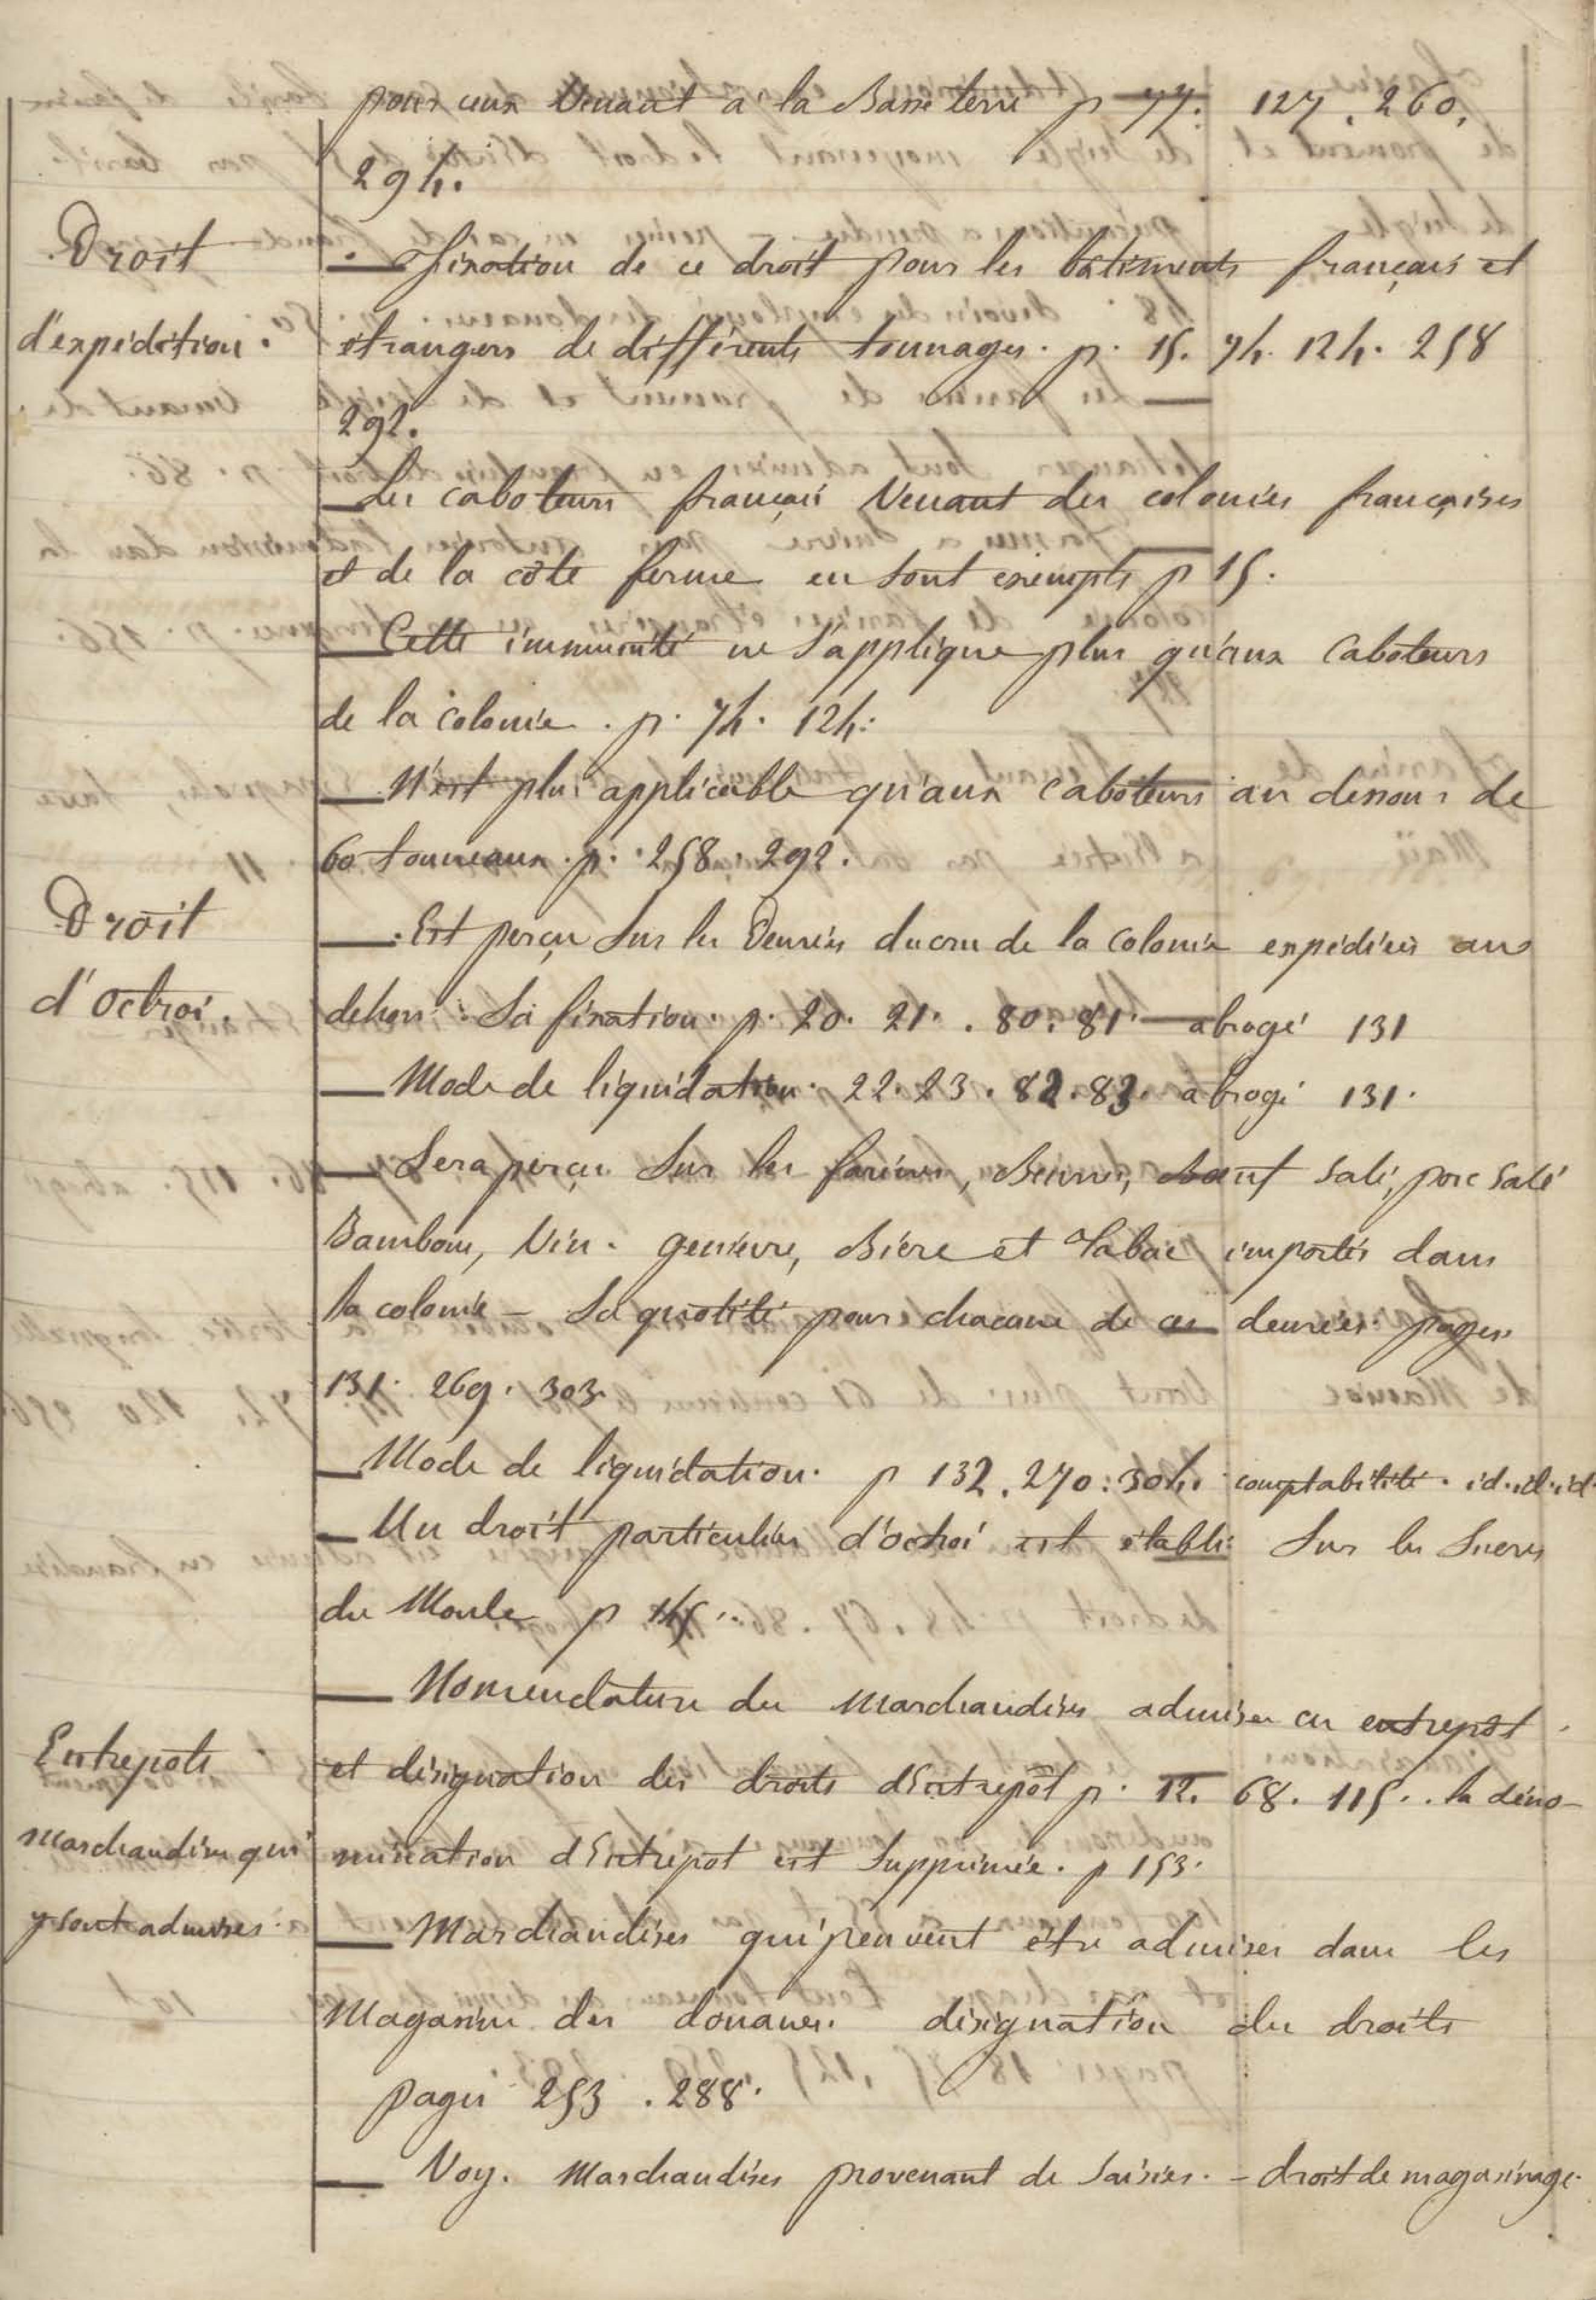 pour ceux Venant a la Basse terre p 77. 127. 260.
294.
Droit
— fixation de ce droit pour les batiments français et
d'expédition.
étrangers de différents tonnages. p. 15. 74. 124. 258
292.
— Les caboteurs français Venant des colonies françaises
et de la côte ferme en sont exempts p 15.
— Cette immunité ne s'applique plus qu'aux Caboteurs
de la colonie. p. 74. 124.
— N'est plus applicable qu'aux Caboteurs au dessous de
60 tonneaux. p. 258. 292.
Droit
— Est perçu Sur les Denrées du cru de la Colonie expédiées au
d'Octroi.
dehors. Sa fixation. p. 20. 21. . 80. 81. — abrogé 131
— Mode de liquidation. 22. 23. 82. 83. abrogé 131.
— Sera perçu Sur les farines, Beurre, Bœuf Salé, porc Salé
Jambons, Vin. genievre, Bière et Tabac importés dans
la colonie — Sa quotité pour chacune de ces denrées. pages
131. 269. 303.
— Mode de liquidation. p 132. 270. 304. comptabilité. id. id. id.
— Un droit particulier d'octroi est établi Sur les Sucres
du Moule p 145.
— Nomenclature des Marchandises admises en entrepôt
Entrepots
et désignation des droits d'Entrepôt p. 12. 68. 115. . la déno-
Marchandises qui
mination d'Entrepot est Supprimée. p 153.
y sont admises.
— Marchandises qui peuvent être admises dans les
Magasins des douanes. désignation des droits
pages 253. 288.
— Voy. Marchandises provenant de Saisies. — droit de magasinage.